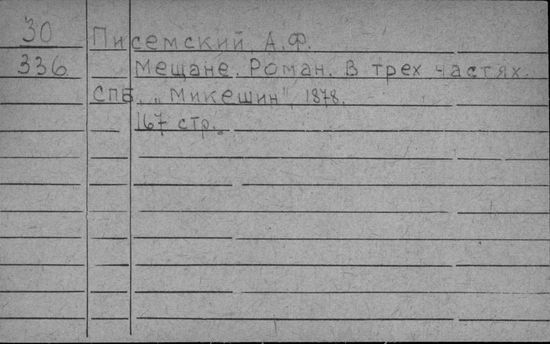 30 Писемский, А.Ф.
336 Мещане. Роман. В трех частях.
СПБ., "Микешин", 1878.
167 стр.